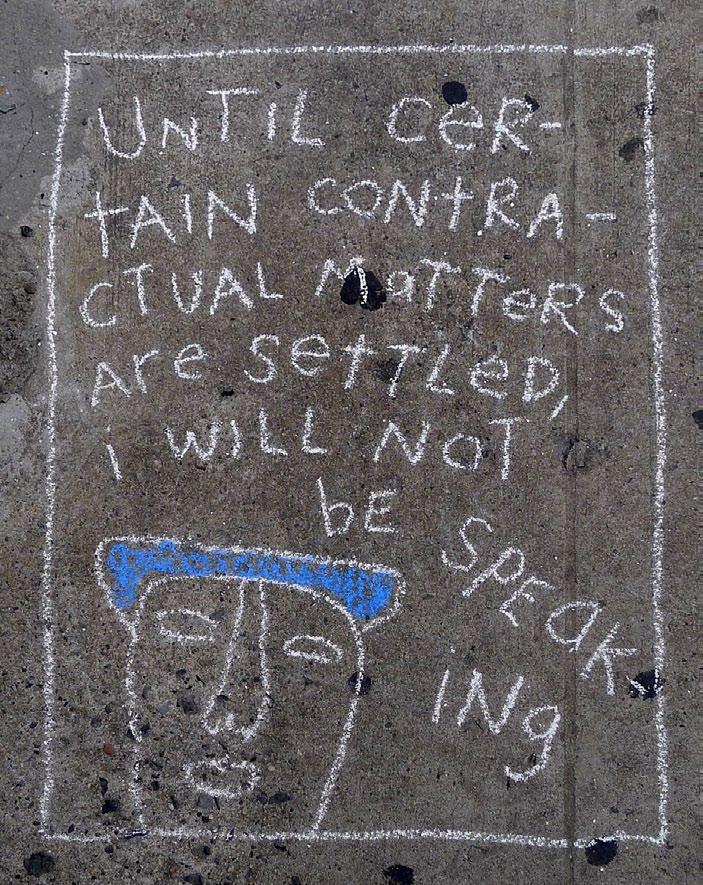 UNTiL CeR-
tAIN CONtRA-
CTUAL MaTTeRS
Are SettLeD,
i WiLL NOT
bE
SPEaK-
iNg